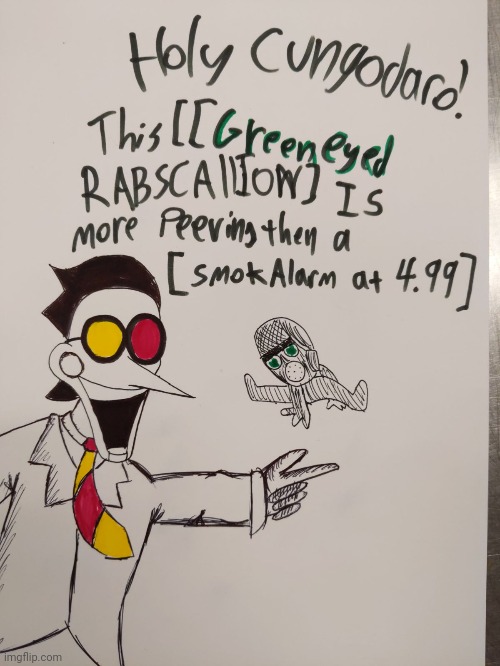 Holy Cungodaro!
This [[Green eyed
RABSCAllION] IS
more Peeving then a
[smokAlarm at 4.99]
imgflip.com